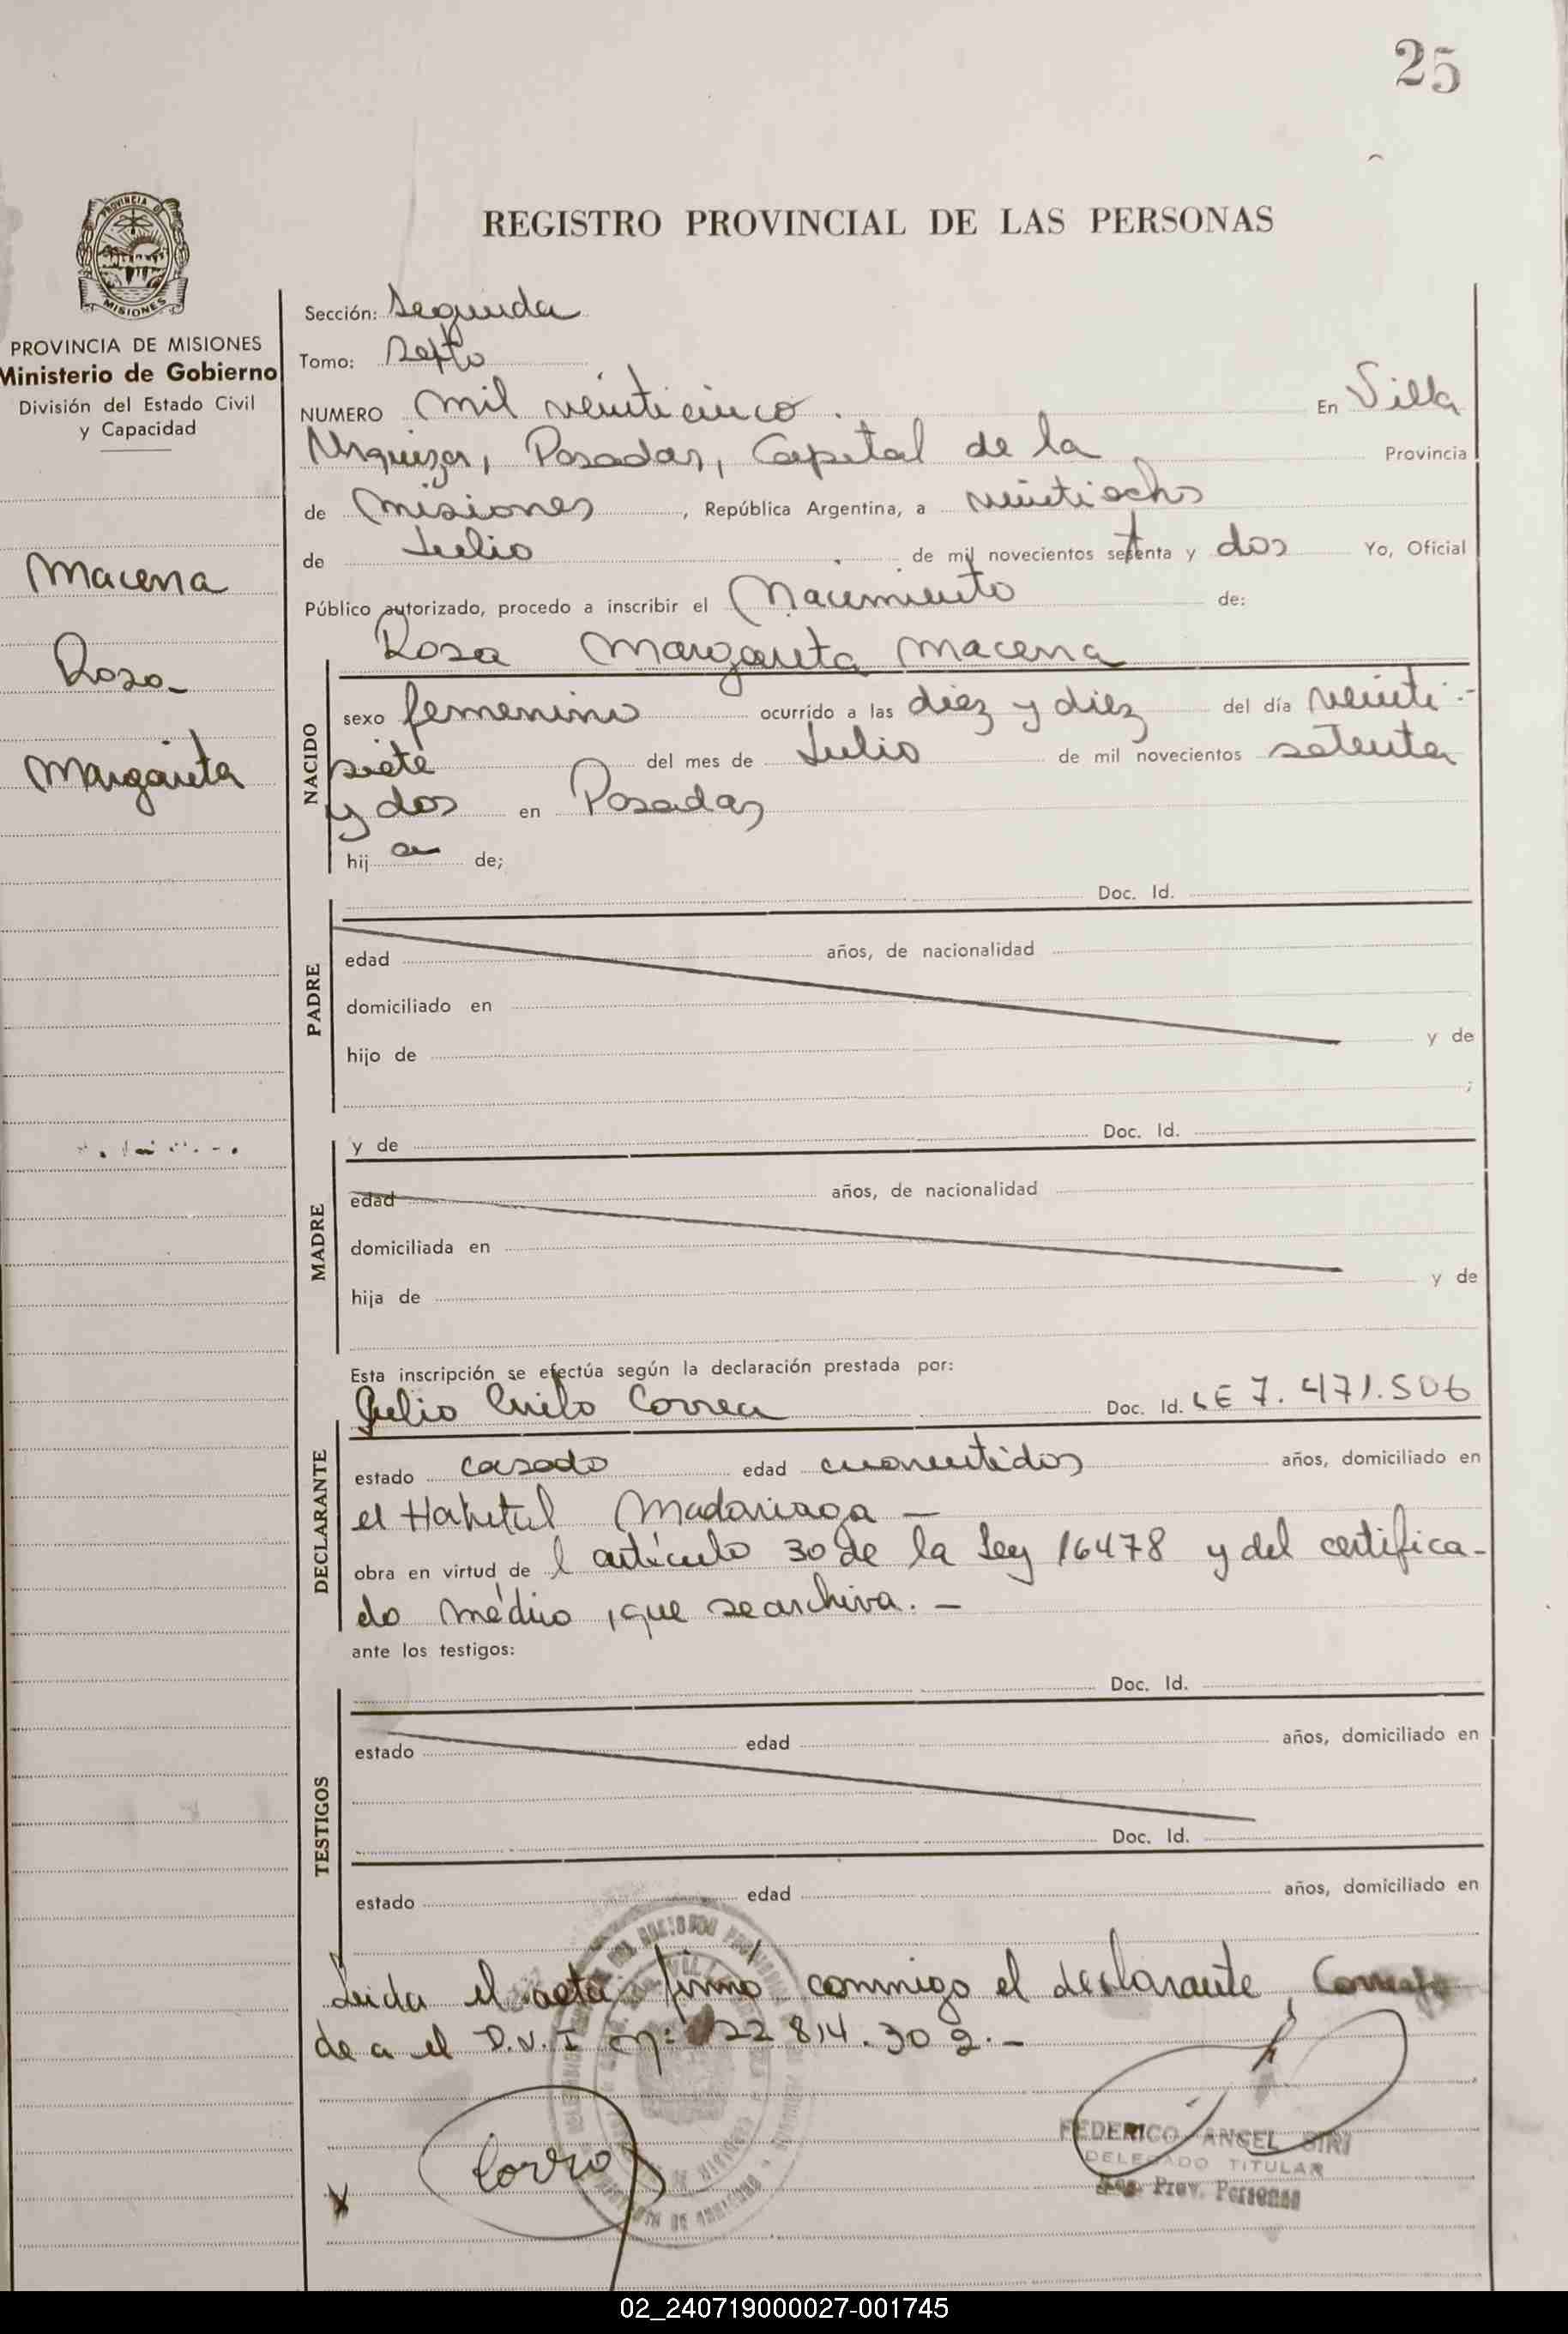 25
REGISTRO PROVINCIAL DE LAS PERSONAS
PROVINCIA DE MISIONES
Ministerio de Gobierno
División del Estado Civil
y Capacidad
Macena
Rosa
Margarita
Sección: Segunda
Tomo: Septo
NUMERO mil veinticinco. En Villa
Urquiza, Posadas, Capital de la Provincia
de Misiones, República Argentina, a veintiocho
de Julio de mil novecientos setenta y dos Yo, Oficial
Público autorizado, procedo a inscribir el Nacimiento de:
Rosa Margarita Macena
NACIDO
sexo femenino ocurrido a las diez y diez del día veinti-
siete del mes de Julio de mil novecientos setenta
y dos en Posadas
hij a de;
Doc. Id.
PADRE
edad años, de nacionalidad
domiciliado en
hijo de y de
;
y de Doc. Id.
MADRE
edad años, de nacionalidad
domiciliada en
hija de y de
Esta inscripción se efectúa según la declaración prestada por:
Julio Correa Doc. Id. LE 7.471.506
DECLARANTE
estado casado edad cuarentidos años, domiciliado en
el Madariaga —
obra en virtud de l artículo 30 de la Ley 16478 y del certifica-
do médico, que se archiva. —
ante los testigos:
Doc. Id.
TESTIGOS
estado edad años, domiciliado en
Doc. Id.
estado edad años, domiciliado en
Leida el acta, firma conmigo el declarante,
de a el D.N.I nº: 22 814.302.—
FEDERICO ANGEL SIRI
DELEGADO TITULAR
Reg. Prov. Personas
02_240719000027-001745